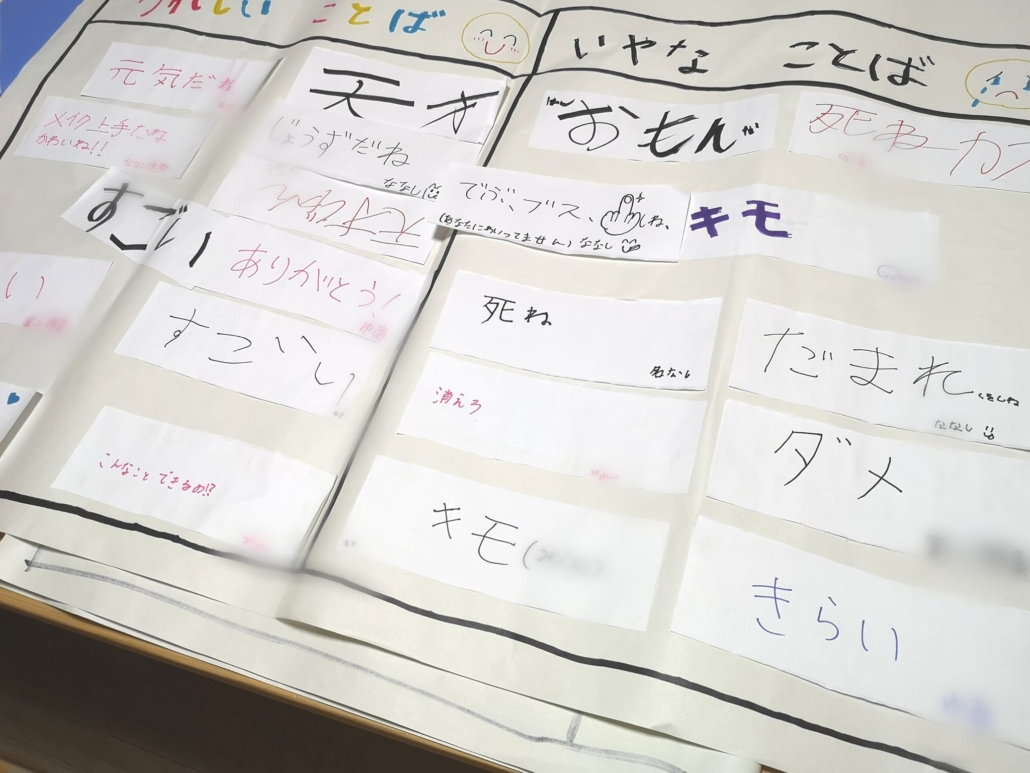 うれしい ことば
いやな ことば
元気だね
天才
メイク上手だね
かわいいね!!
じょうずだね
ななし
すごい
ありがとう!
い
すごいい
こんなことできるの!?
おもんな
死ねーカス
でぶ、ブス、しね、
(あなたにあいってません)ななし
キモ
死ね
名なし
だまれ
ななし
消えろ
ダメ
キモ(
きらい